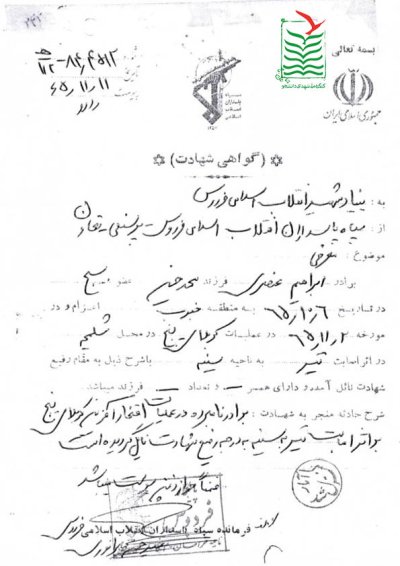 بسمه تعالی
جمهوری اسلامی ایران
سپاه
پاسداران
انقلاب
اسلامی
کنگره ملی شهدای دانشجو
۶۵/۱۱/۱۱
دارد
(گواهی شهادت)
به : بنیاد شهید انقلاب اسلامی فردوس
از : سپاه پاسداران انقلاب اسلامی فردوس - پرسنلی - تعاون
موضوع : معرفی
برادر ابراهیم عنصری فرزند محمدحسین عضو بسیج
در تاریخ ۶۵/۱۰/۶ به منطقه جنوب اعزام و در
مورخه ۶۵/۱۱/۲ در عملیات کربلای پنج در محل شلمچه
در اثر اصابت تیر به ناحیه سینه باشرح ذیل به مقام رفیع
شهادت نائل آمده و دارای همسر - و تعداد - فرزند میباشد
شرح حادثه منجر به شهادت : برادر نامبرده در عملیات افتخارآفرین کربلای پنج
بر اثر اصابت تیر به سینه به درجه رفیع شهادت نایل گردیده است
ضمناً
میباشد
فرمانده سپاه پاسداران انقلاب اسلامی فردوس